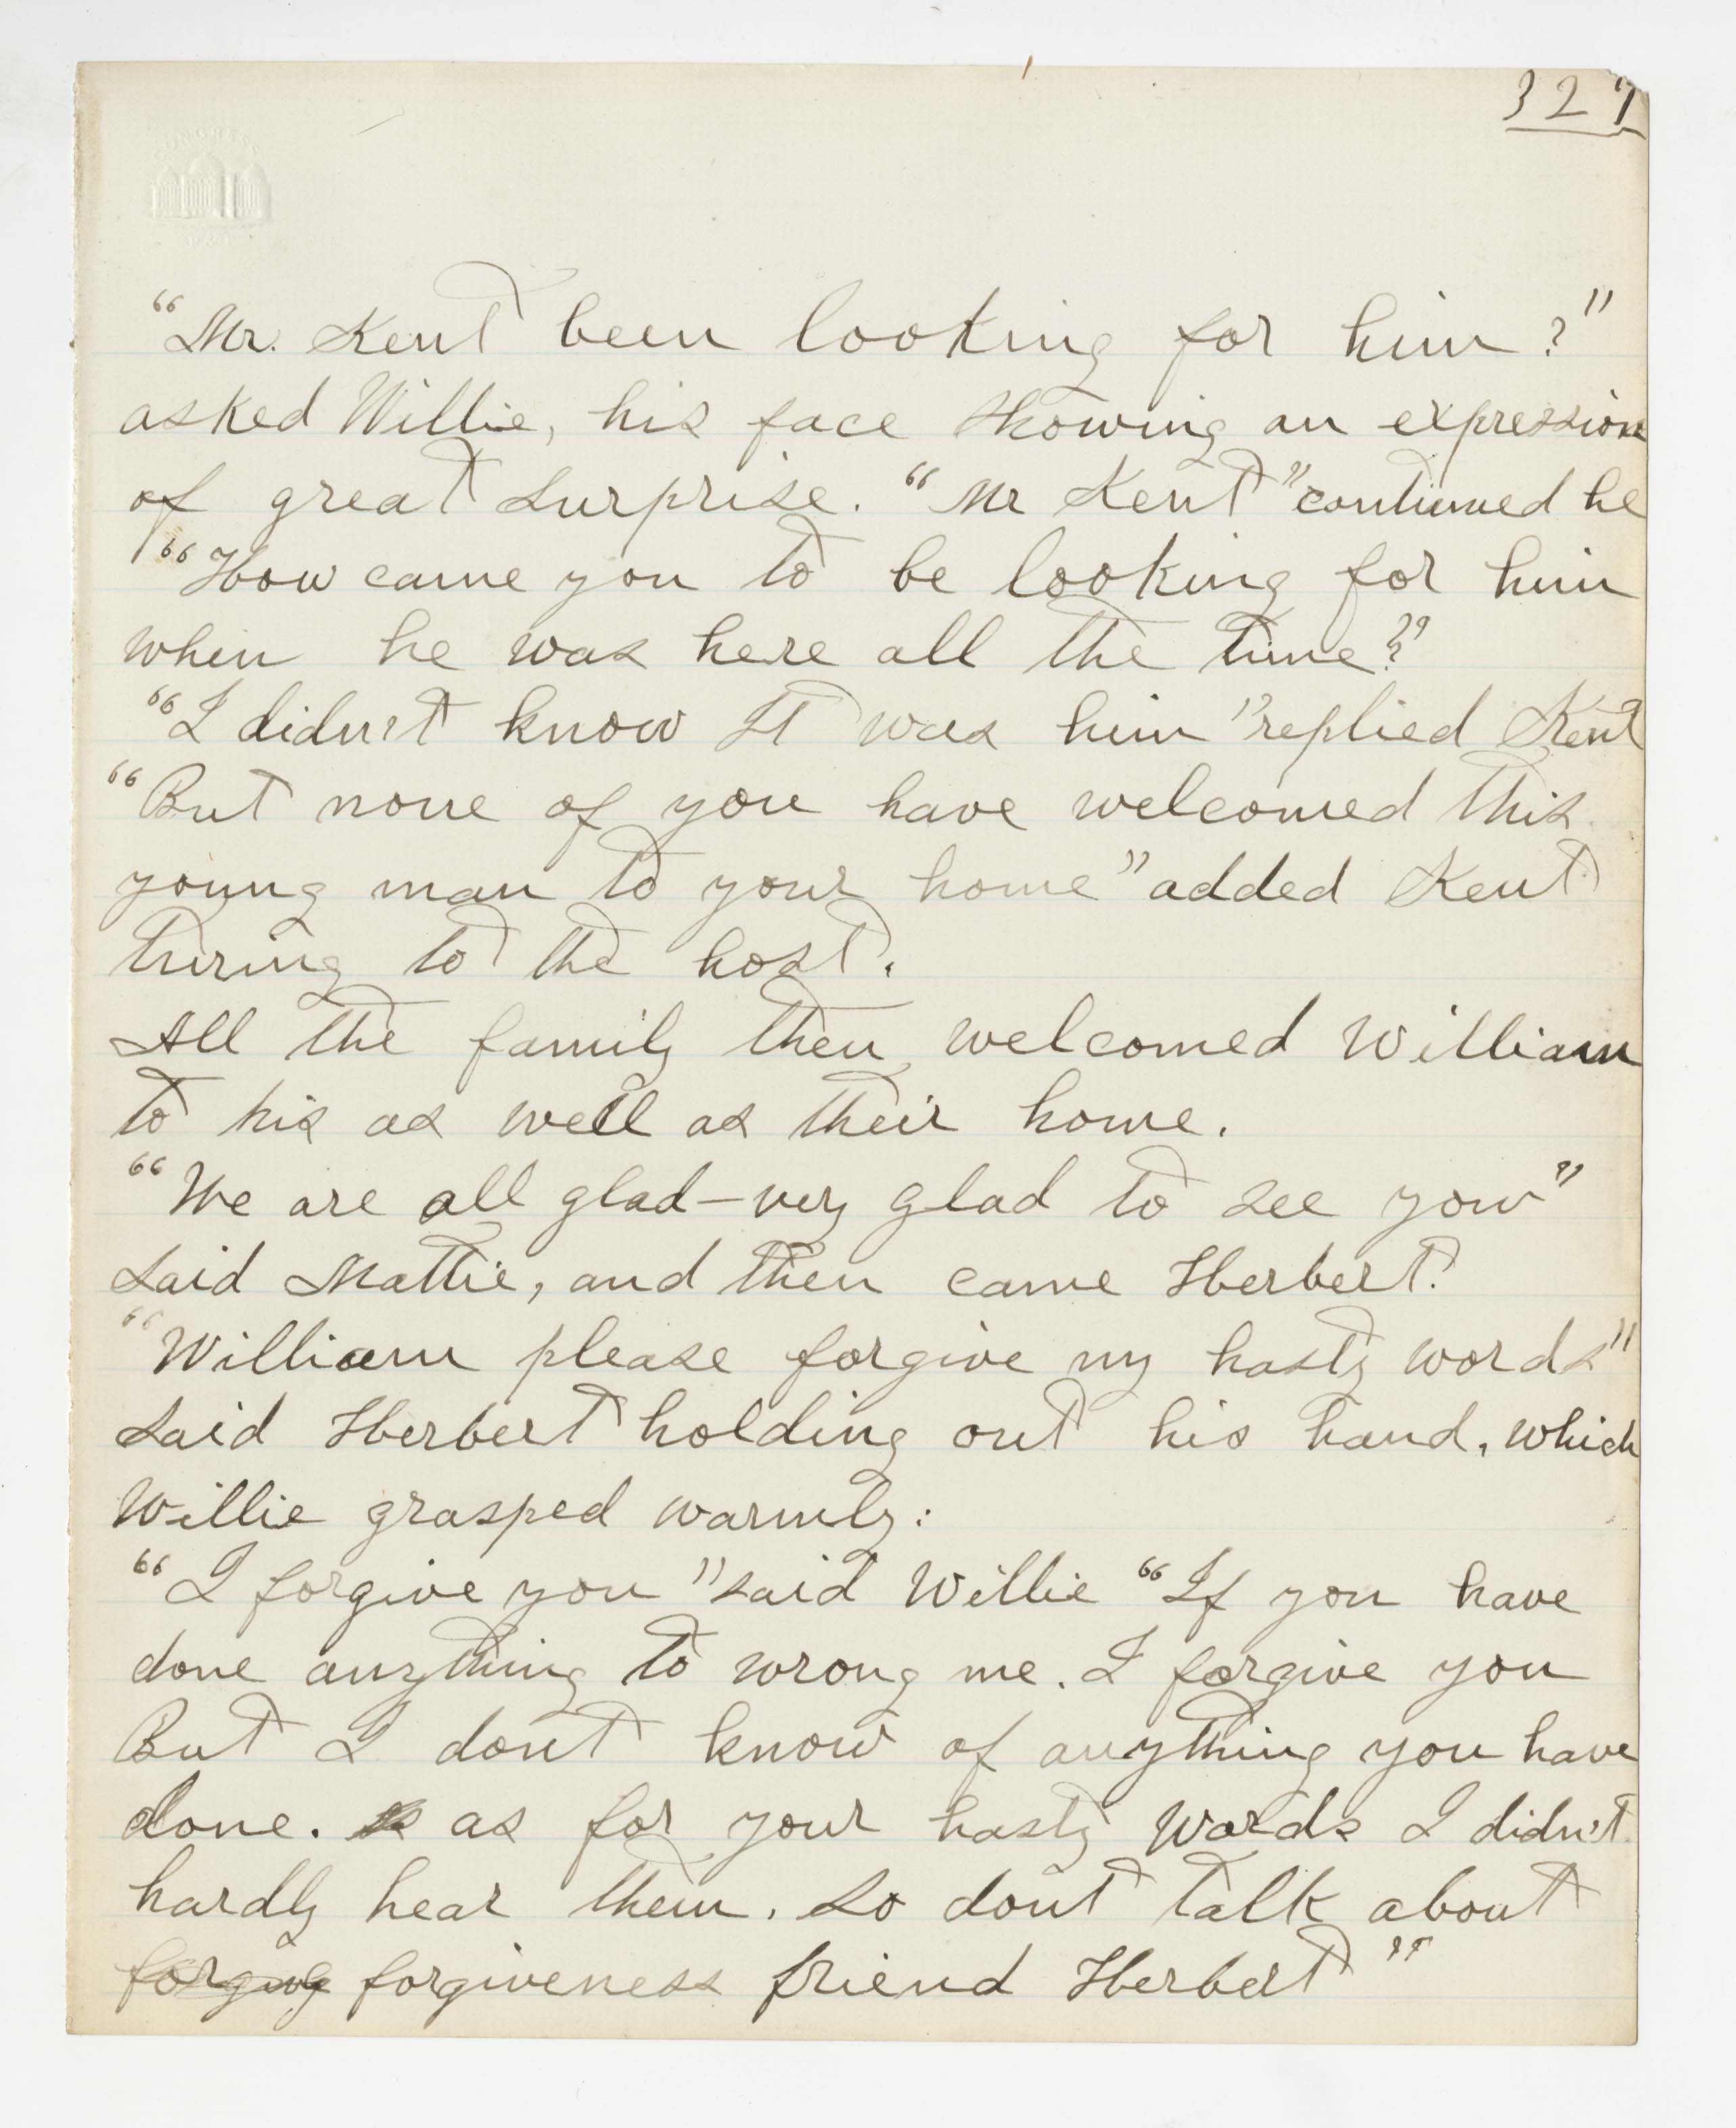 327
"Mr. Kent been looking for him?"
asked Willie, his face showing an expression
of great surprise. "Mr Kent" continued he
"How came you to be looking for him
when he was here all the time?"
"I didn't know It was him" replied Kent
"But none of you have welcomed this
young man to your home" added Kent
turing to the host.
All the family then welcomed William
to his as well as their home.
"We are all glad—very glad to see you"
said Mattie, and then came Herbert.
"William please forgive my hasty words"
said Herbert holding out his hand, which
Willie grasped warmly:
"I forgive you" said Willie "If you have
done anything to wrong me. I forgive you
But I dont know of anything you have
done. as for your hasty words I didn't
hardly hear them. So dont talk about
forgiveness friend Herbert"